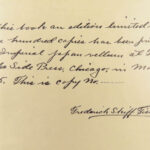 This book: an edition limited
hundred copies has been
Imperial Japan vellum at
Side Press, Chicago, in
5. This is copy No.
Frederick